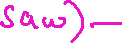 saw).—